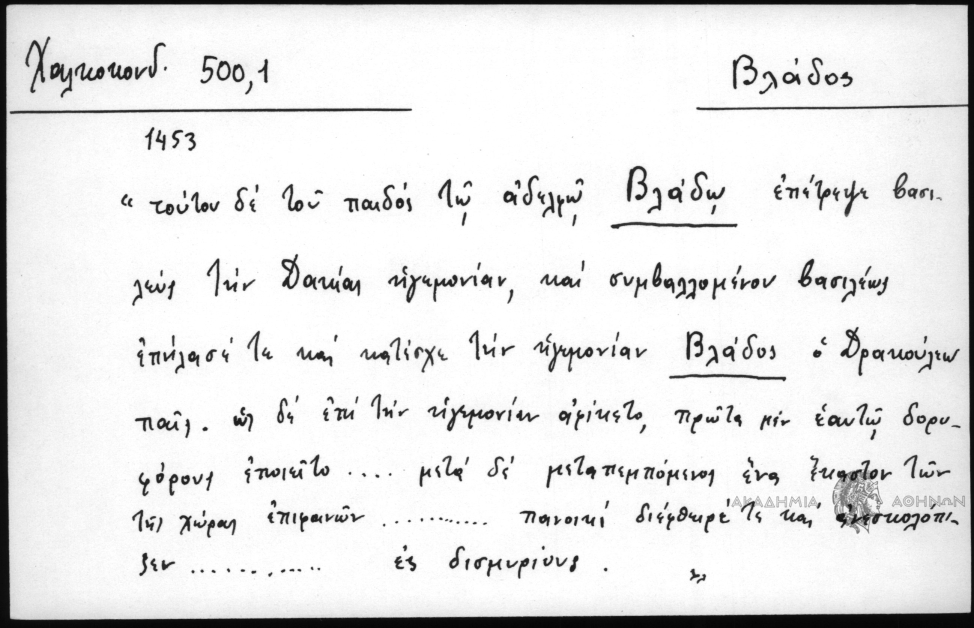 Χαλκοκονδ. 500,1
Βλάδος
1453
“ τούτου δέ τοῦ παιδός τῷ ἀδελφῷ Βλάδῳ ἐπέτρεψε βασι-
λεύς τήν Δακίας ἡγεμονίαν, καί συμβαλλομένου βασιλέως
ἐπήλασέ τε καί κατέσχε τήν ἡγεμονίαν Βλάδος ὁ Δρακούλεω
παῖς. ὡς δέ ἐπί τήν ἡγεμονίαν ἀφίκετο, πρῶτα μέν ἑαυτῷ δορυ-
φόρους ἐποιεῖτο .... μετά δέ μεταπεμπόμενος ἕνα ἕκαστον τῶν
τῆς χώρας ἐπιφανῶν ............ πανοικί διέφθειρέ τε καί ἀνεσκολόπι-
ζεν ............. ἐς δισμυρίους . ”
ΑΚΑΔΗΜΙΑ ΑΘΗΝΩΝ